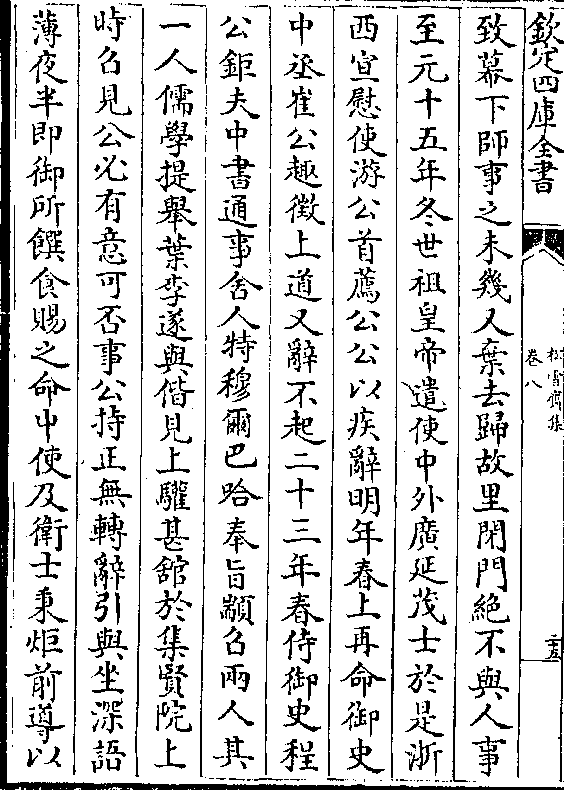 欽定四庫全書
松雪齋集
卷八
二五
致幕下師事之未幾又棄去歸故里閉門絶不與人事
至元十五年冬世祖皇帝遣使中外廣延茂士於是浙
西宣慰使游公首薦公公以疾辭明年春上再命御史
中丞崔公趣徴上道又辭不起二十三年春侍御史程
公鉅夫中書通事舍人特穆爾巴哈奉旨顓召兩人其
一人儒學提舉葉李遂與偕見上驩甚舘於集賢院上
時召見公必有意可否事公持正無轉辭引與坐深語
薄夜半即御所饌食賜之命中使及衛士秉炬前導以